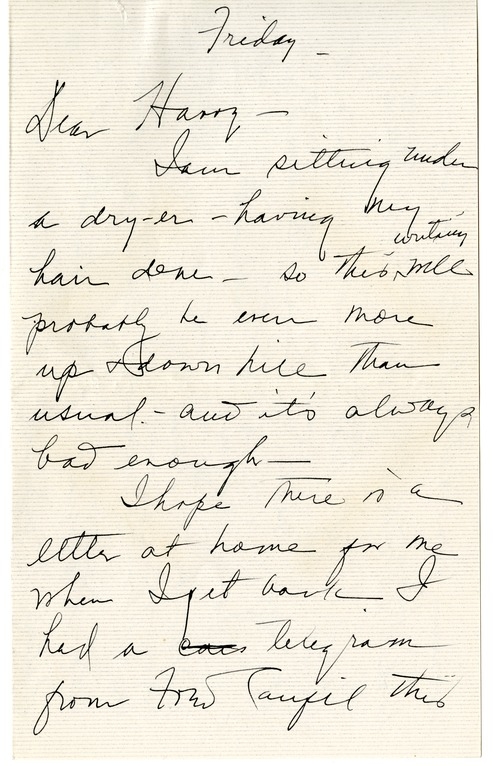 Friday -
Dear Harry -
I am sitting under
a dry-er - having my
hair done - so this writing will
probably be even more
up & down hill than
usual - and it's always
bad enough -
I hope there is a
letter at home for me
when I get back I
had a telegram
from this